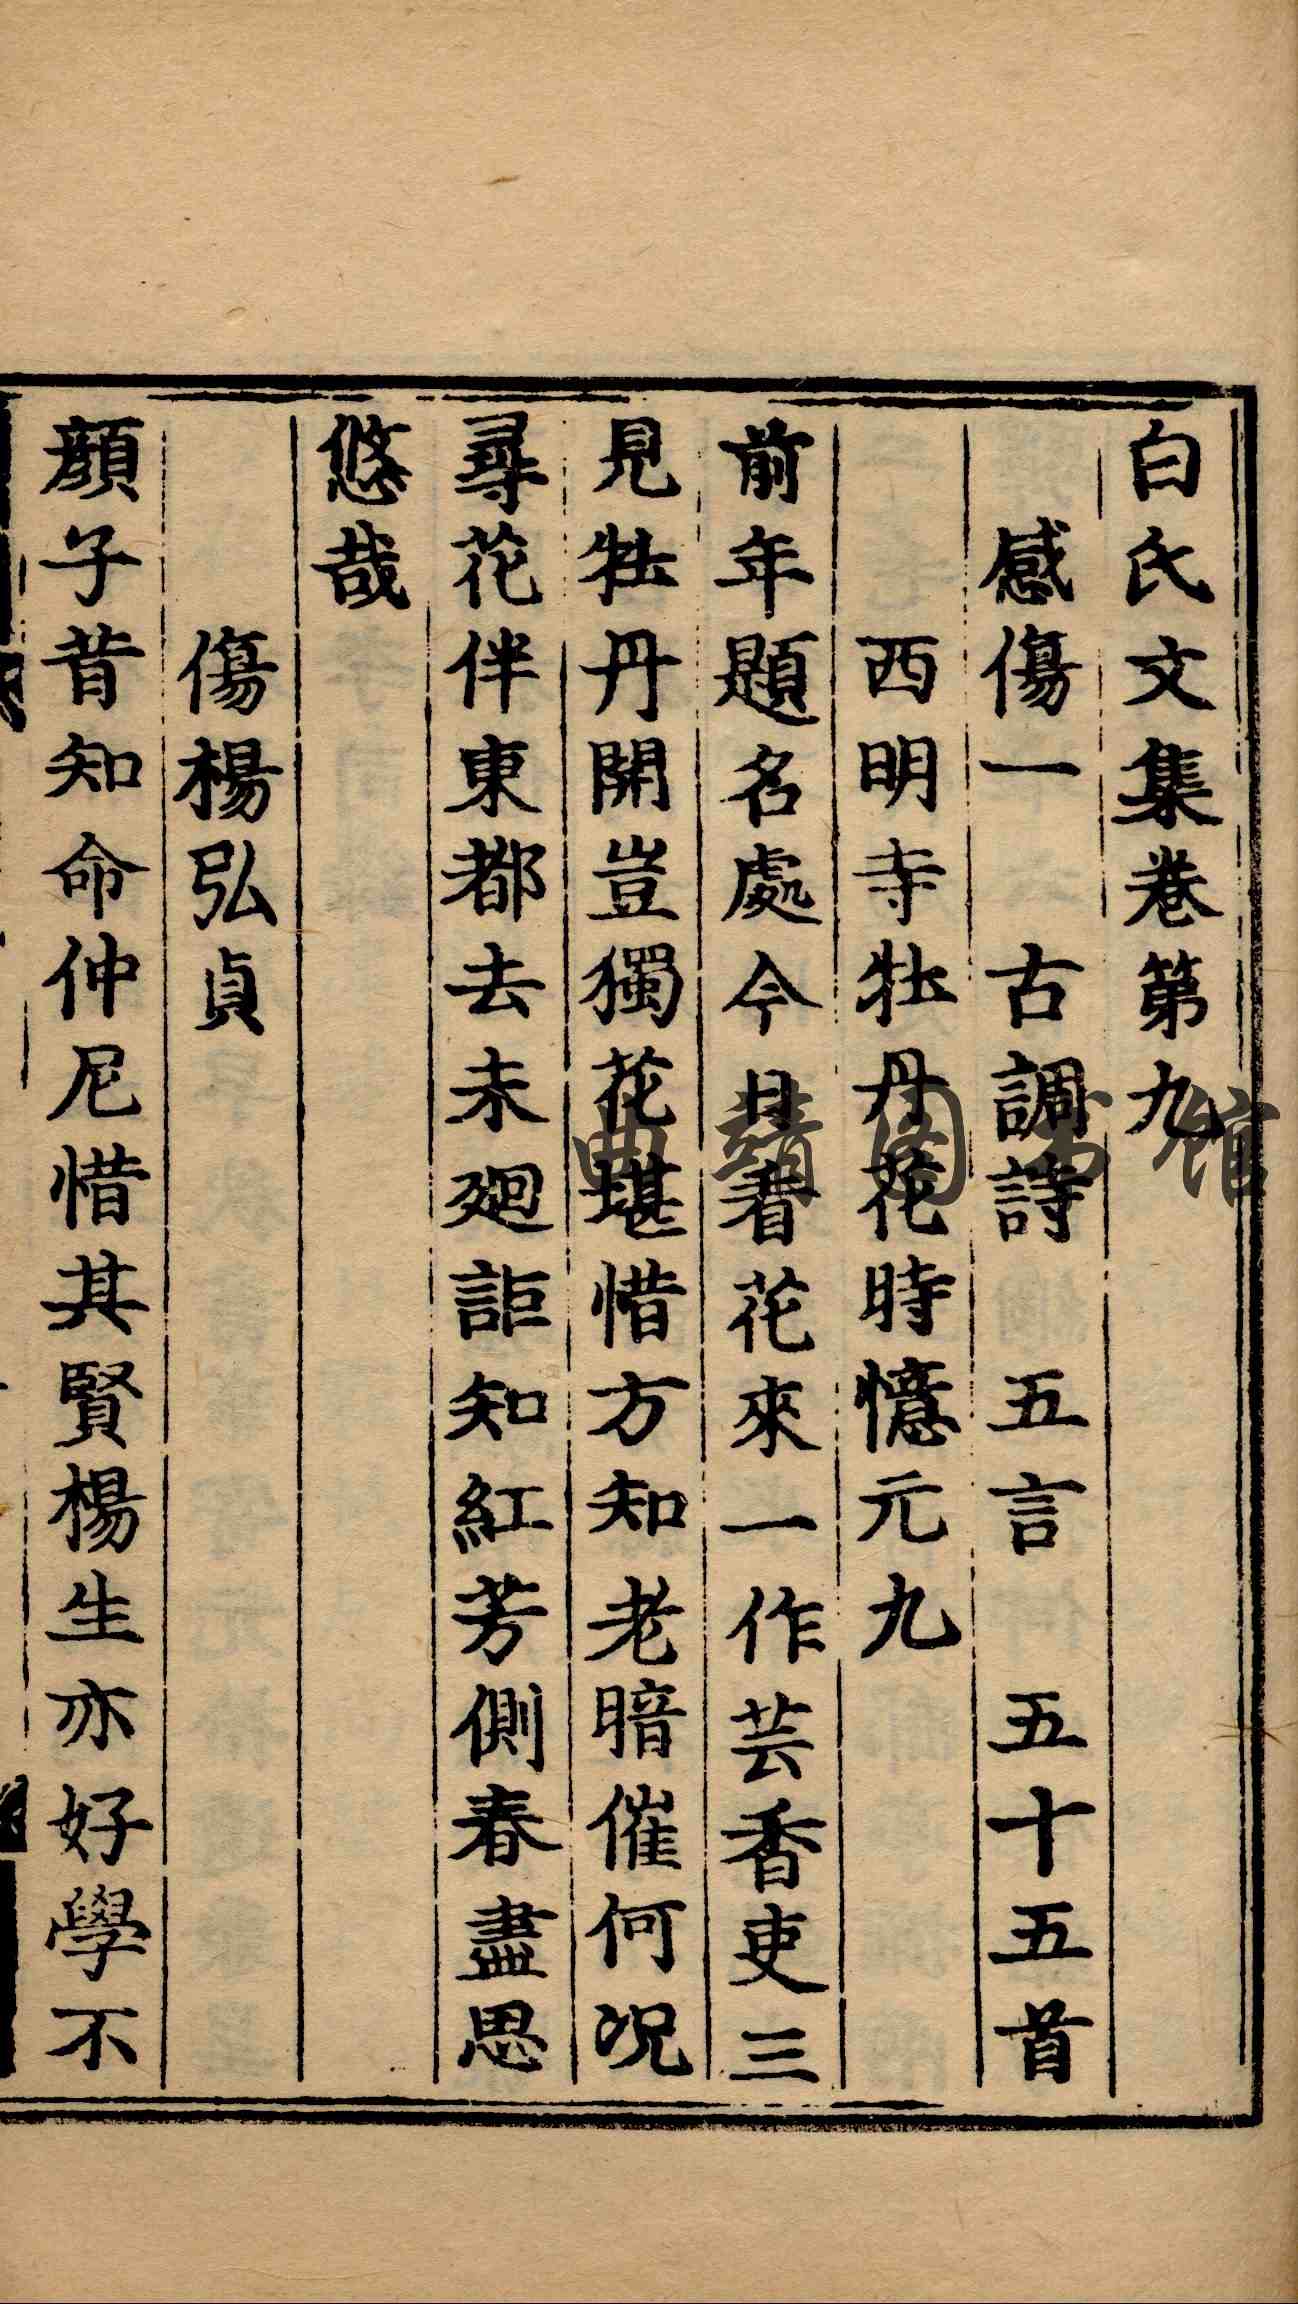 白氏文集卷第九
感傷一 古調詩 五言 五十五首
西明寺牡丹花時憶元九
前年題名處今日看花來一作芸香吏三
見牡丹開豈獨花堪惜方知老暗催何況
尋花伴東都去未廻詎知紅芳側春盡思
悠哉
傷楊弘貞
顔子昔知命仲尼惜其賢楊生亦好學不
典籍图书馆